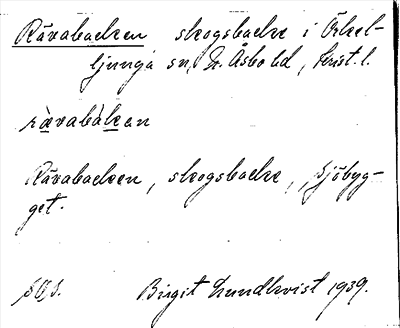 Rävabacken skogsbacke i Örkel-
ljunga sn, N. Åsbo hd, Krist. l.
rävabakən
Rävabacken, skogsbacke, Sjöbyg-
get.
Birgit Lundkvist 1939.